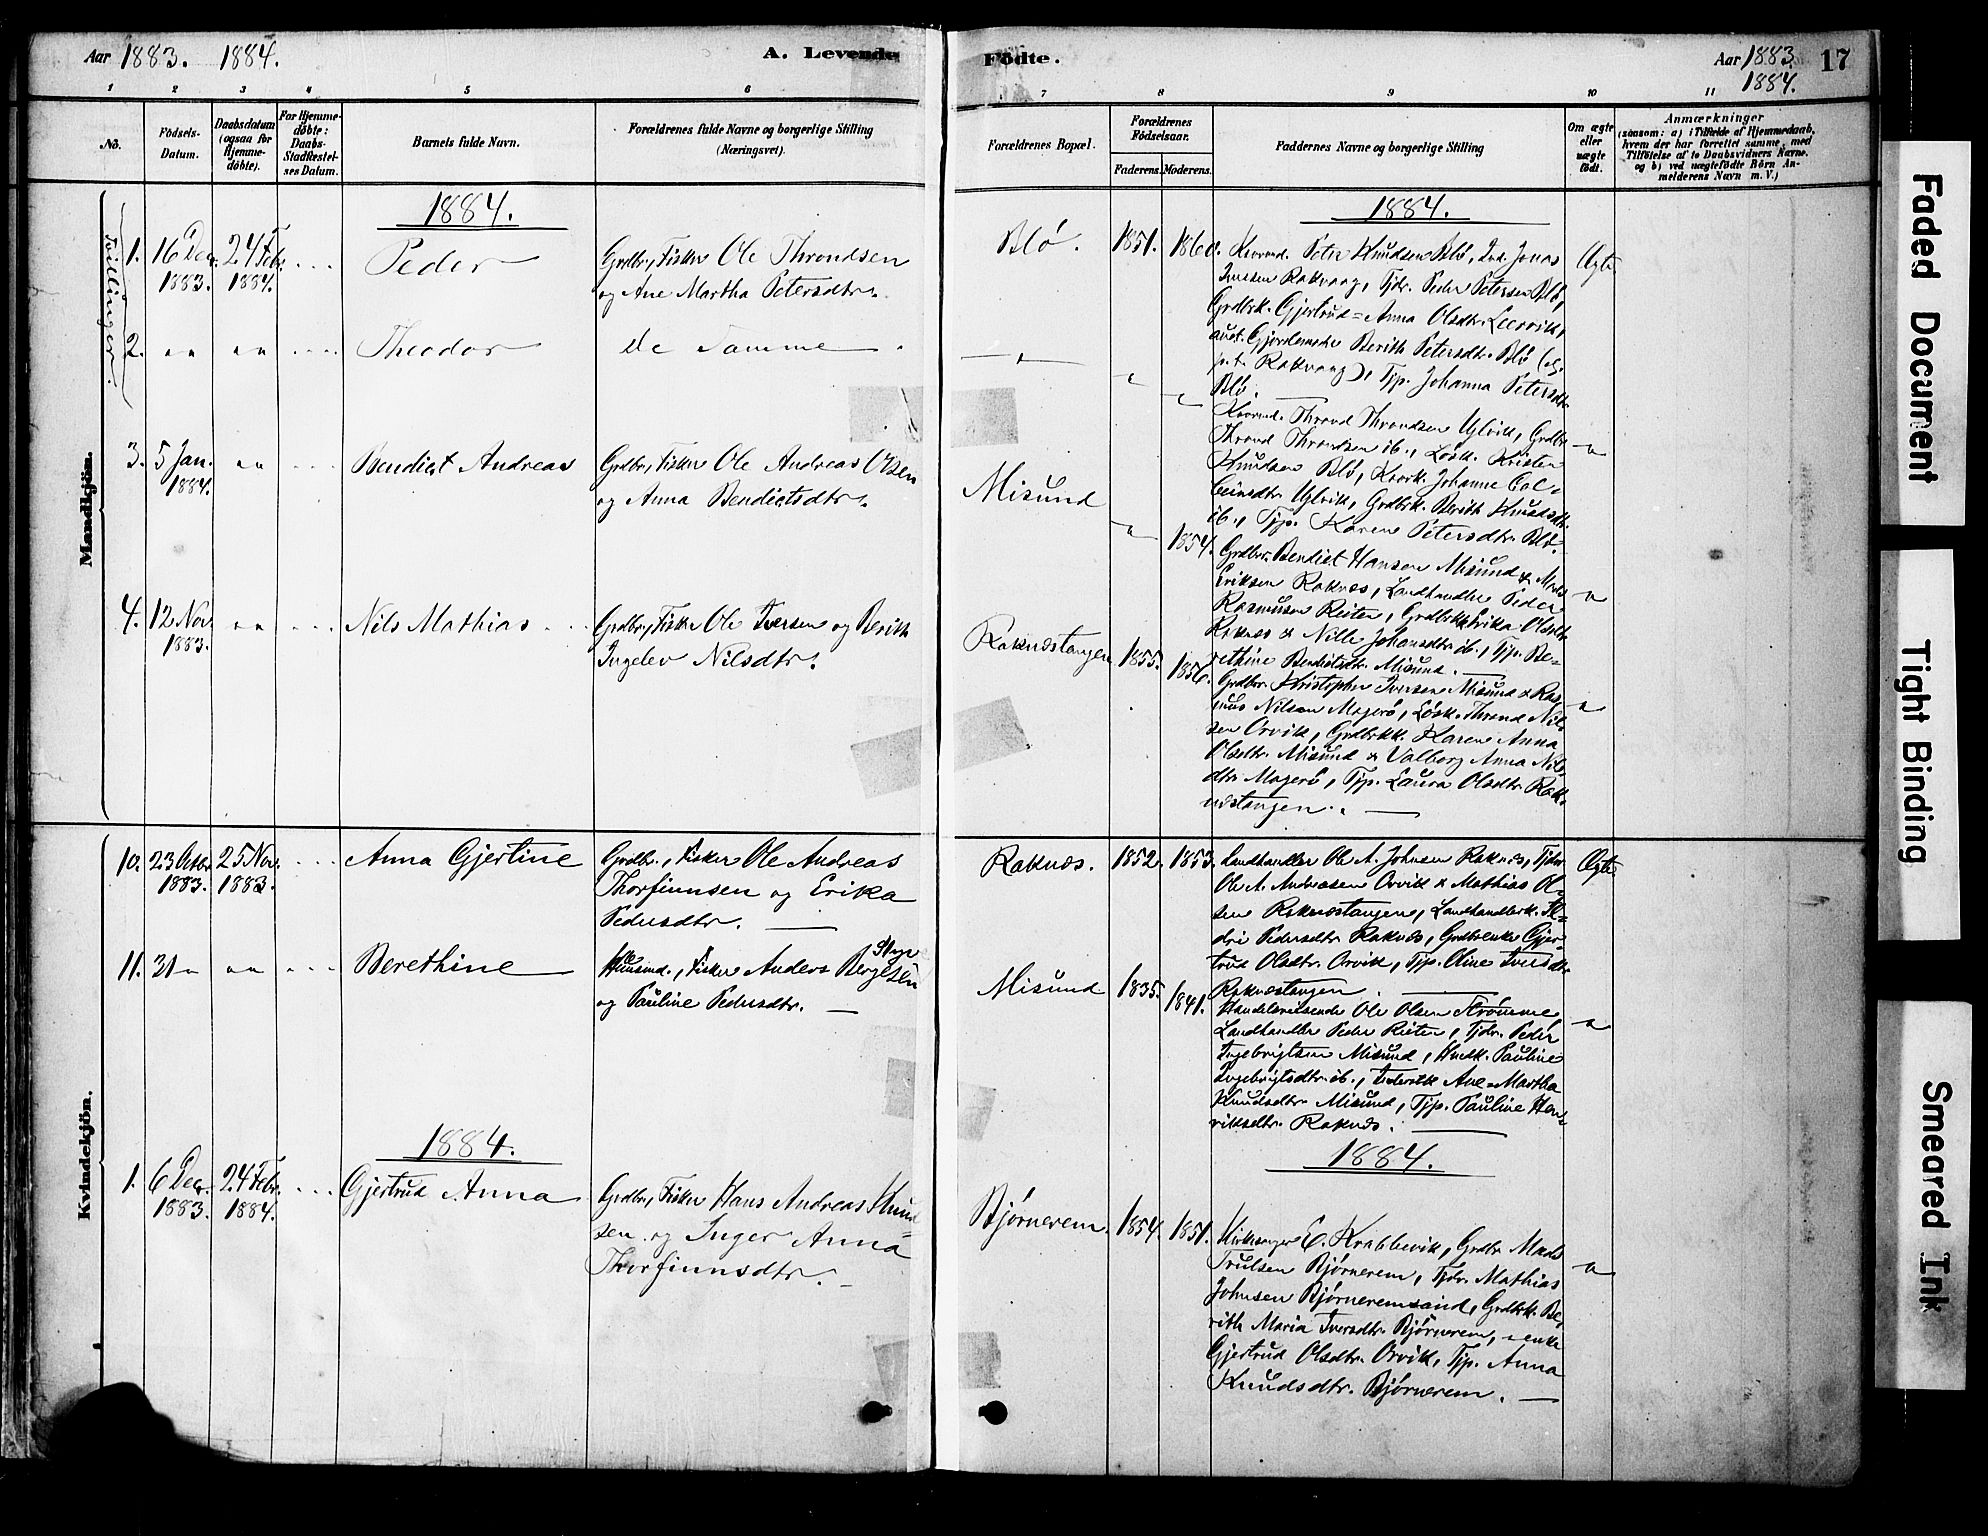 Aar 1883. 1884.
A. Levende
Födte.
Aar 1883.
1884.
17
1 2 3 4 5 6
7 8 9 10 11
No.
Födsels-
Datum.
Daabsdatum
(ogsaa for
Hjemme-
døbte).
For Hjemme-
døbte:
Daabs-
Stadfæstel-
ses Datum.
Barnets fulde Navn.
Forældrenes fulde Navne og borgerlige Stilling
(Næringsvei).
Forældrenes Bopæl.
Forældrenes
Fødselsaar.
Faderens.
Moderens.
Faddernes Navne og borgerlige Stilling
Om ægte
eller
uægte
født.
Anmærkninger
(saasom: a) i Tilfælde af Hjemmedaab,
hvem der har forrettet samme, med
Tilføielse af to Daabsvidners Navne,
og b) ved uægtefødte Børn An-
melderens Navn m. V.)
Mandkjön.
Tvillinger.
1884.
1884.
1. 16 Dec. 1883. 24 Febr. 1884. Peder
Grdbr., Fisker Ole Throndsen
og Ane Martha Petersdtr.
Blø. 1851. 1860.
Peter Knudsen Blø, Jonas
Iversen Rakvaag, Tjdr. Peder Petersen Blø,
Grdbrk. Gjertrud Anna Olsdtr.
Berith Petersdtr. Blø
p.t. Rakvaag), Tjp. Johanna Petersdtr.
Blø.
Ægte
2. " " " " Theodor
de Samme
Thrond Throndsen Uglvik, Grdbr.
Thrond Throndsen ib., Løsk. Kristen
Knudsen Blø, Johanne
Uglvik, Grdbrk. Berith Knudsdtr.
ib., Tjp. Karen Petersdtr. Blø.
3. 5 Jan. 1884. " " Bendict Andreas
Grdbr., Fisker Ole Andreas Olsen
og Anna Bendictsdtr.
Misund
1854.
Grdbr. Bendict Hansen Misund & Mads
Eriksen Raknes, Landhandler Peder
Rasmusen Reiten, Grdbrk. Erika Olsdtr.
Raknes & Nille Johansdtr. ib., Tjp. Be-
rethine Bendictsdtr. Misund.
4. 12 Nov. 1883. " " Nils Mathias
Grdbr., Fisker Ole Iversen og Berith
Ingelev Nilsdtr.
Raknestangen 1855. 1856.
Grdbr. Kristopher Iversen Misund & Ras-
mus Nilsen Magerø, Løsk. Thrond Nil-
sen Orvik, Grdbrkk. Karen Anna
Olsdtr. Misund & Valborg Anna Nils-
dtr. Magerø, Tjp. Laura Olsdtr. Rak-
nestangen.
Kvindekjön.
10. 23 Octbr. 1883. 25 Nov. 1883. Anna Gjertine
Grdbr., Fisker Ole Andreas
Thorfinnsen og Erika
Pedersdtr.
Raknes. 1852. 1853.
Landhandler Ole A. Johnsen Raknes, Tjdr.
Ole A. Andreasen Orvik & Mathias Ol-
sen Raknestangen, Landhandlerk.
Pedersdtr. Raknes, Grdbrenke Gjer-
trud Olsdtr. Orvik, Tjp. Oline Iversdtr.
Raknestangen.
Ægte
11. 31 " " " Berethine
Husmd., Fisker Anders Bergesen
og Pauline Pedersdtr.
Misund 1835. 1841.
Handelsreisende Ole Olsen Strømme,
Landhandler Peder Reiten, Tjdr. Peder
Ingebrigtsen Misund, Husk. Pauline
Ingebrigtsdtr. ib., Ane Martha
Knudsdtr. Misund, Tjp. Pauline Hen-
riksdtr. Raknes.
1884.
1884.
1. 6 Dec. 1883. 24 Febr. 1884. Gjertrud Anna
Grdbr., Fisker Hans Andreas Knud-
sen og Inger Anna
Thorfinnsdtr.
Bjørnerem. 1854. 1851.
Kirkesanger E. Krabbevik, Grdbr. Mads
Trulsen Bjørnerem, Tjdr. Mathias
Johnsen Bjørneremsand, Grdbrk. Be-
rith Maria Iversdtr. Bjørnerem, - enke
Gjertrud Olsdtr. Orvik, Tjp. Anna
Knudsdtr. Bjørnerem.
Faded Document
Tight Binding
Smeared Ink